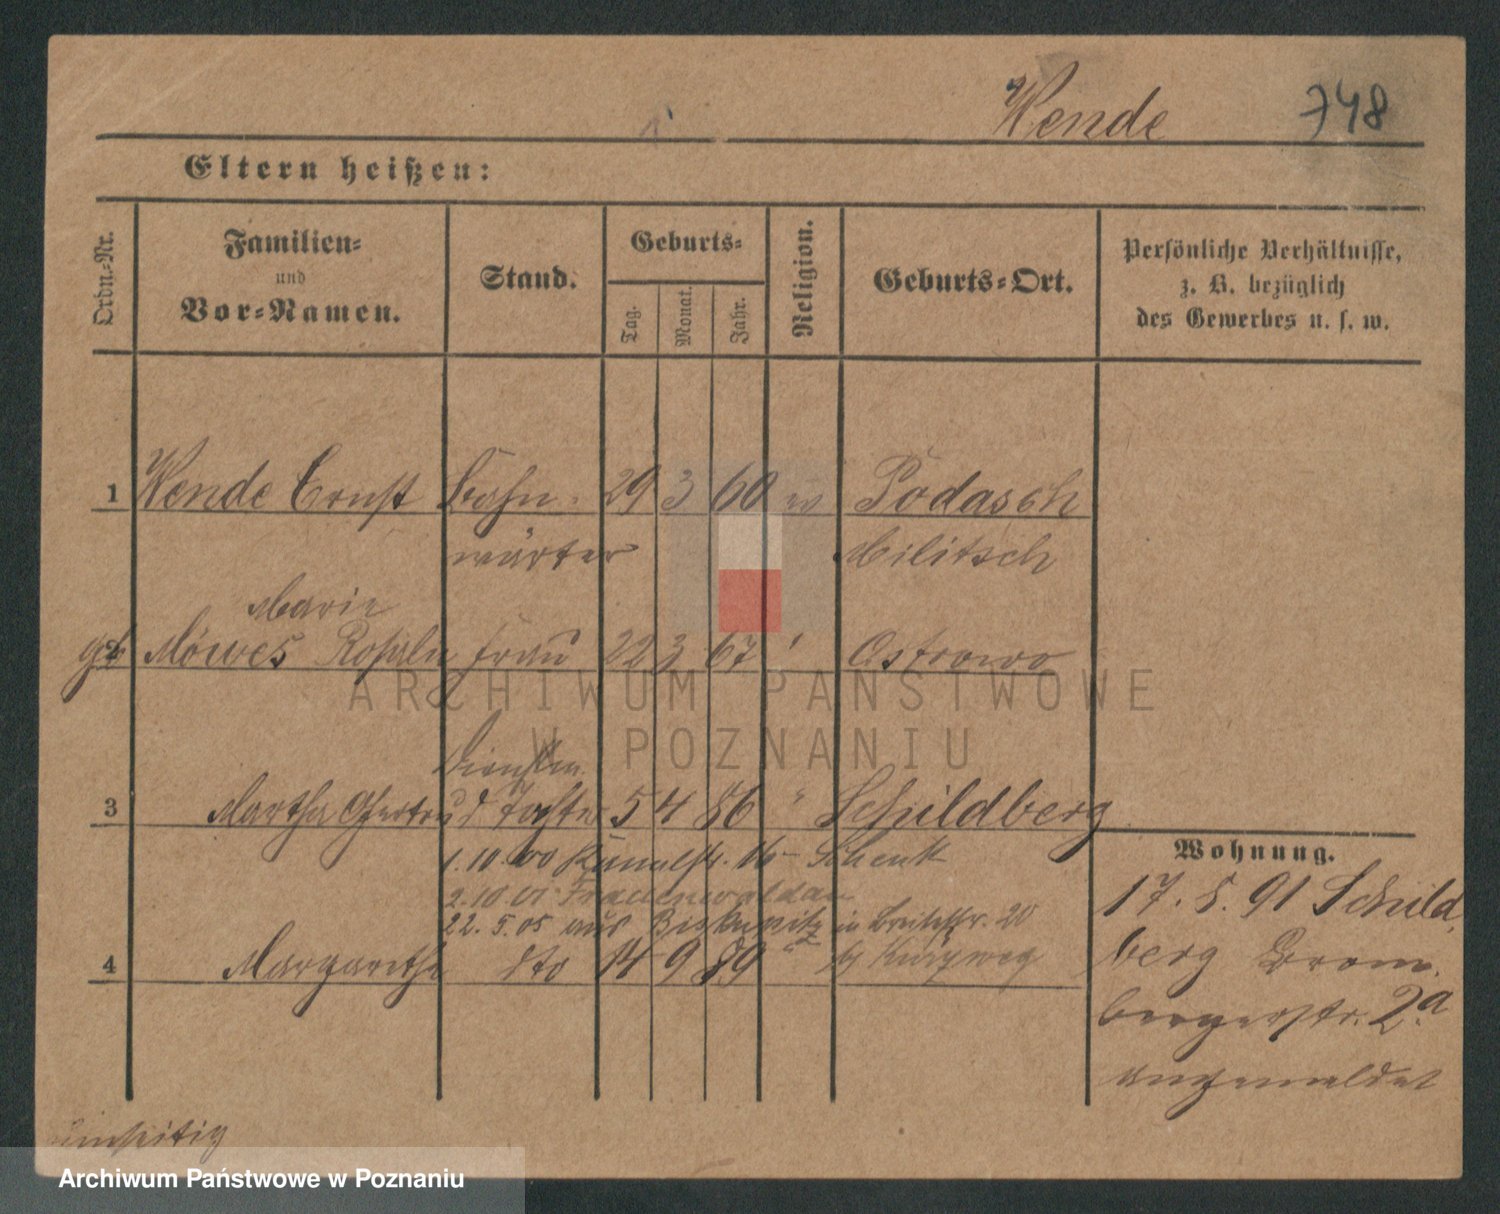 Wende 748
Eltern heißen:
Ordn.-Nr.
Familien-
und
Vor-Namen.
Stand.
Geburts-
Tag.
Monat.
Jahr.
Religion.
Geburts-Ort.
Persönliche Verhältnisse,
z. B. bezüglich
des Gewerbes u. s. w.
1 Wende Ernst Bahn- 29 3 60 ev Podasch
wärter Militsch
Marie
geb 2 Möwes Rosalie Frau 22 3 67 " Ostrowo
Dienstm.
3 Martha Gertrud Tochter 5 4 86 " Schildberg
1.10.00 16 Schenk
2.10.01 Frauenwaldau
22.5.05 aus Biskupitz in Breitestr. 20
4 Margarethe dto 14 9 89 " by
Wohnung.
17.5.91 Schild
berg Brom
bergerstr. 2a
angemeldet
umseitig
ARCHIWUM PAŃSTWOWE
W POZNANIU
Archiwum Państwowe w Poznaniu